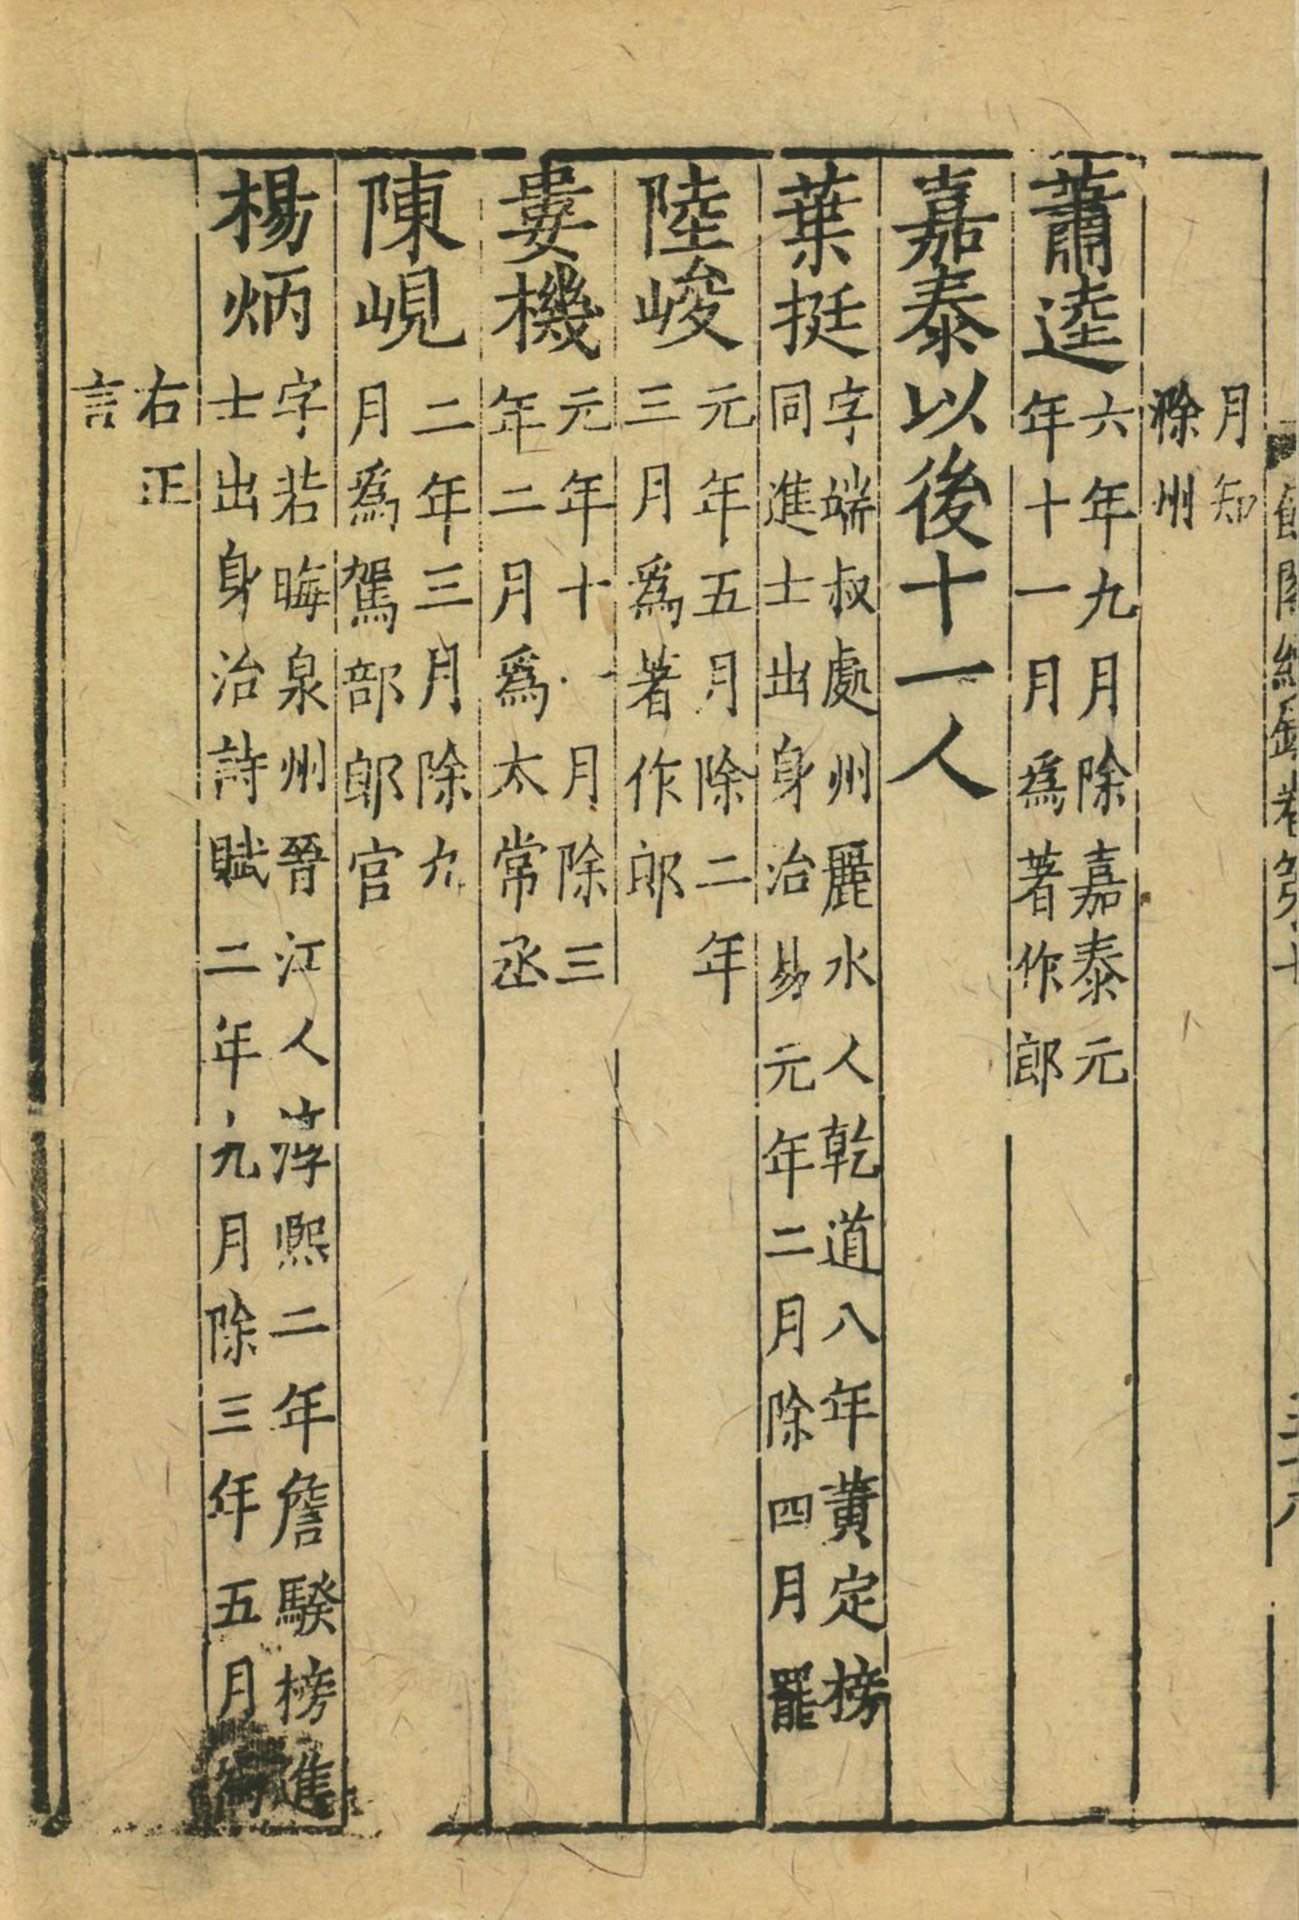 月知
滁州
蕭逵
六年九月除嘉泰元
年十一月爲著作郎
嘉泰以後十一人
葉挺
字端叔處州麗水人乾道八年黄定榜
同進士出身治易元年二月除四月罷
陸峻
元年五月除二年
三月爲著作郎
婁機
元年十一月除三
年二月爲太常丞
陳峴
二年三月除九
月爲駕部郎官
楊炳
字若晦泉州晉江人淳熙二年詹騤榜進
士出身治詩賦二年九月除三年五月
右正
言